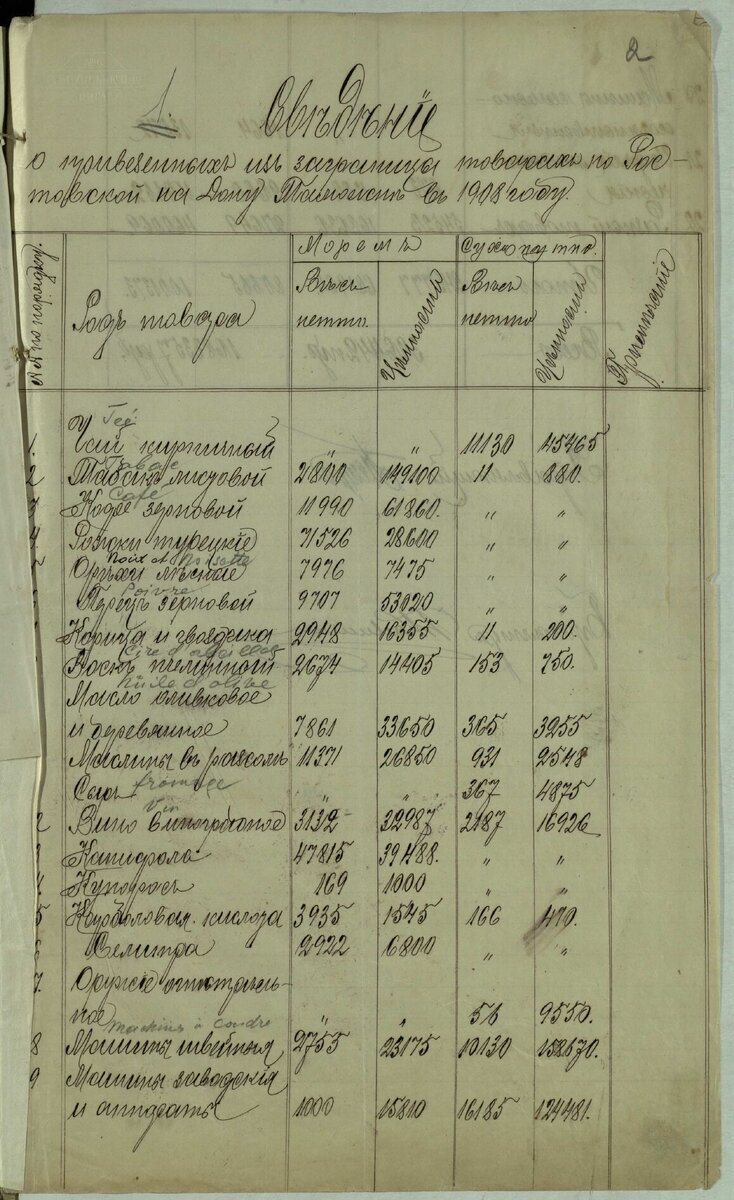 2
1.
Свѣдѣніе
о привезенныхъ изъ заграницы товарахъ по Рос-
товской на Дону Таможнѣ въ 1908 году.
№№ по порядку. Родъ товара Моремъ Сухопутно. Примѣчаніе
Вѣсъ нетто. Цѣнность Вѣсъ нетто Цѣнность
Teé
1. Чай кирпичный „ „ 11130 45465
Tabac
2 Табакъ листовой 2800 149100 11 880.
Café
3 Кофе зерновой 11990 61860. „ „
4. Рожки турецкіе 71526 28600 „ „
Noix et Noisette
5 Орѣхи лѣсные 7976 7475 „ „
Poivre
Перецъ зерновой 9707 53020 „ „
Корица и гвоздика 2948 16355 11 200.
Cire d'abeilles
Воскъ пчелинный 2674 14405 153 750.
Huile d'olive
Масло оливковое
и деревянное 7861 33650 365 3255
Маслины въ разсолѣ 11371 26850 931 2548
Сыръ fromage „ „ 367 4875
Vin
2 Вино виноградное 3132 32987 2187 16926
3 Канифоль 47815 39488. „ „
4 Купоросъ 169 1000 „ „
5 Карболовая кислота 3935 1545 166 470.
6 Селитра 2922 6800 „ „
7. Оружіе огнестрѣль-
ное „ „ 56 9550.
machines à coudre
8 Машины швейныя 2755 23175 10130 158670.
9 Машины заводскія
и аппараты 1000 15810 16185 124481.